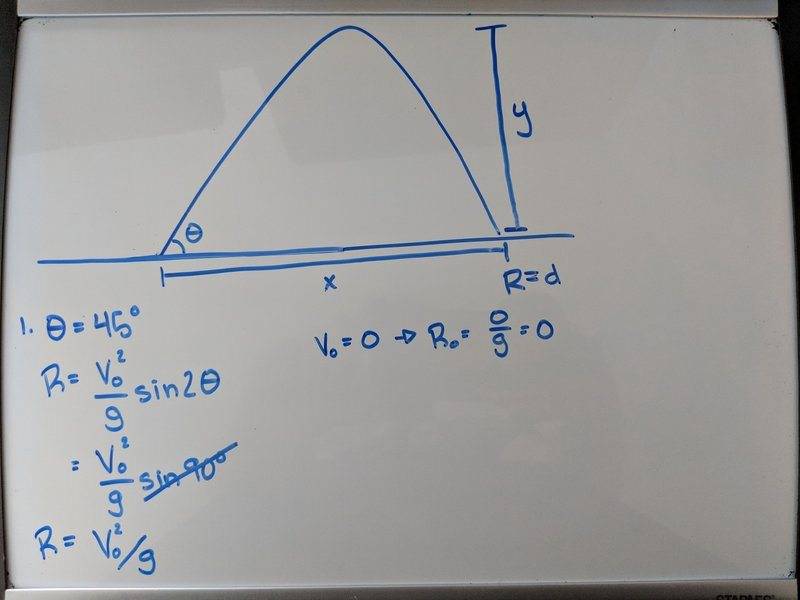 θ
y
x
R=d
1. θ = 45°
R = V₀²/g sin2θ
= V₀²/g sin 90°
R = V₀²/g
V₀ = 0 → R₀ = 0/g = 0
STAPLES